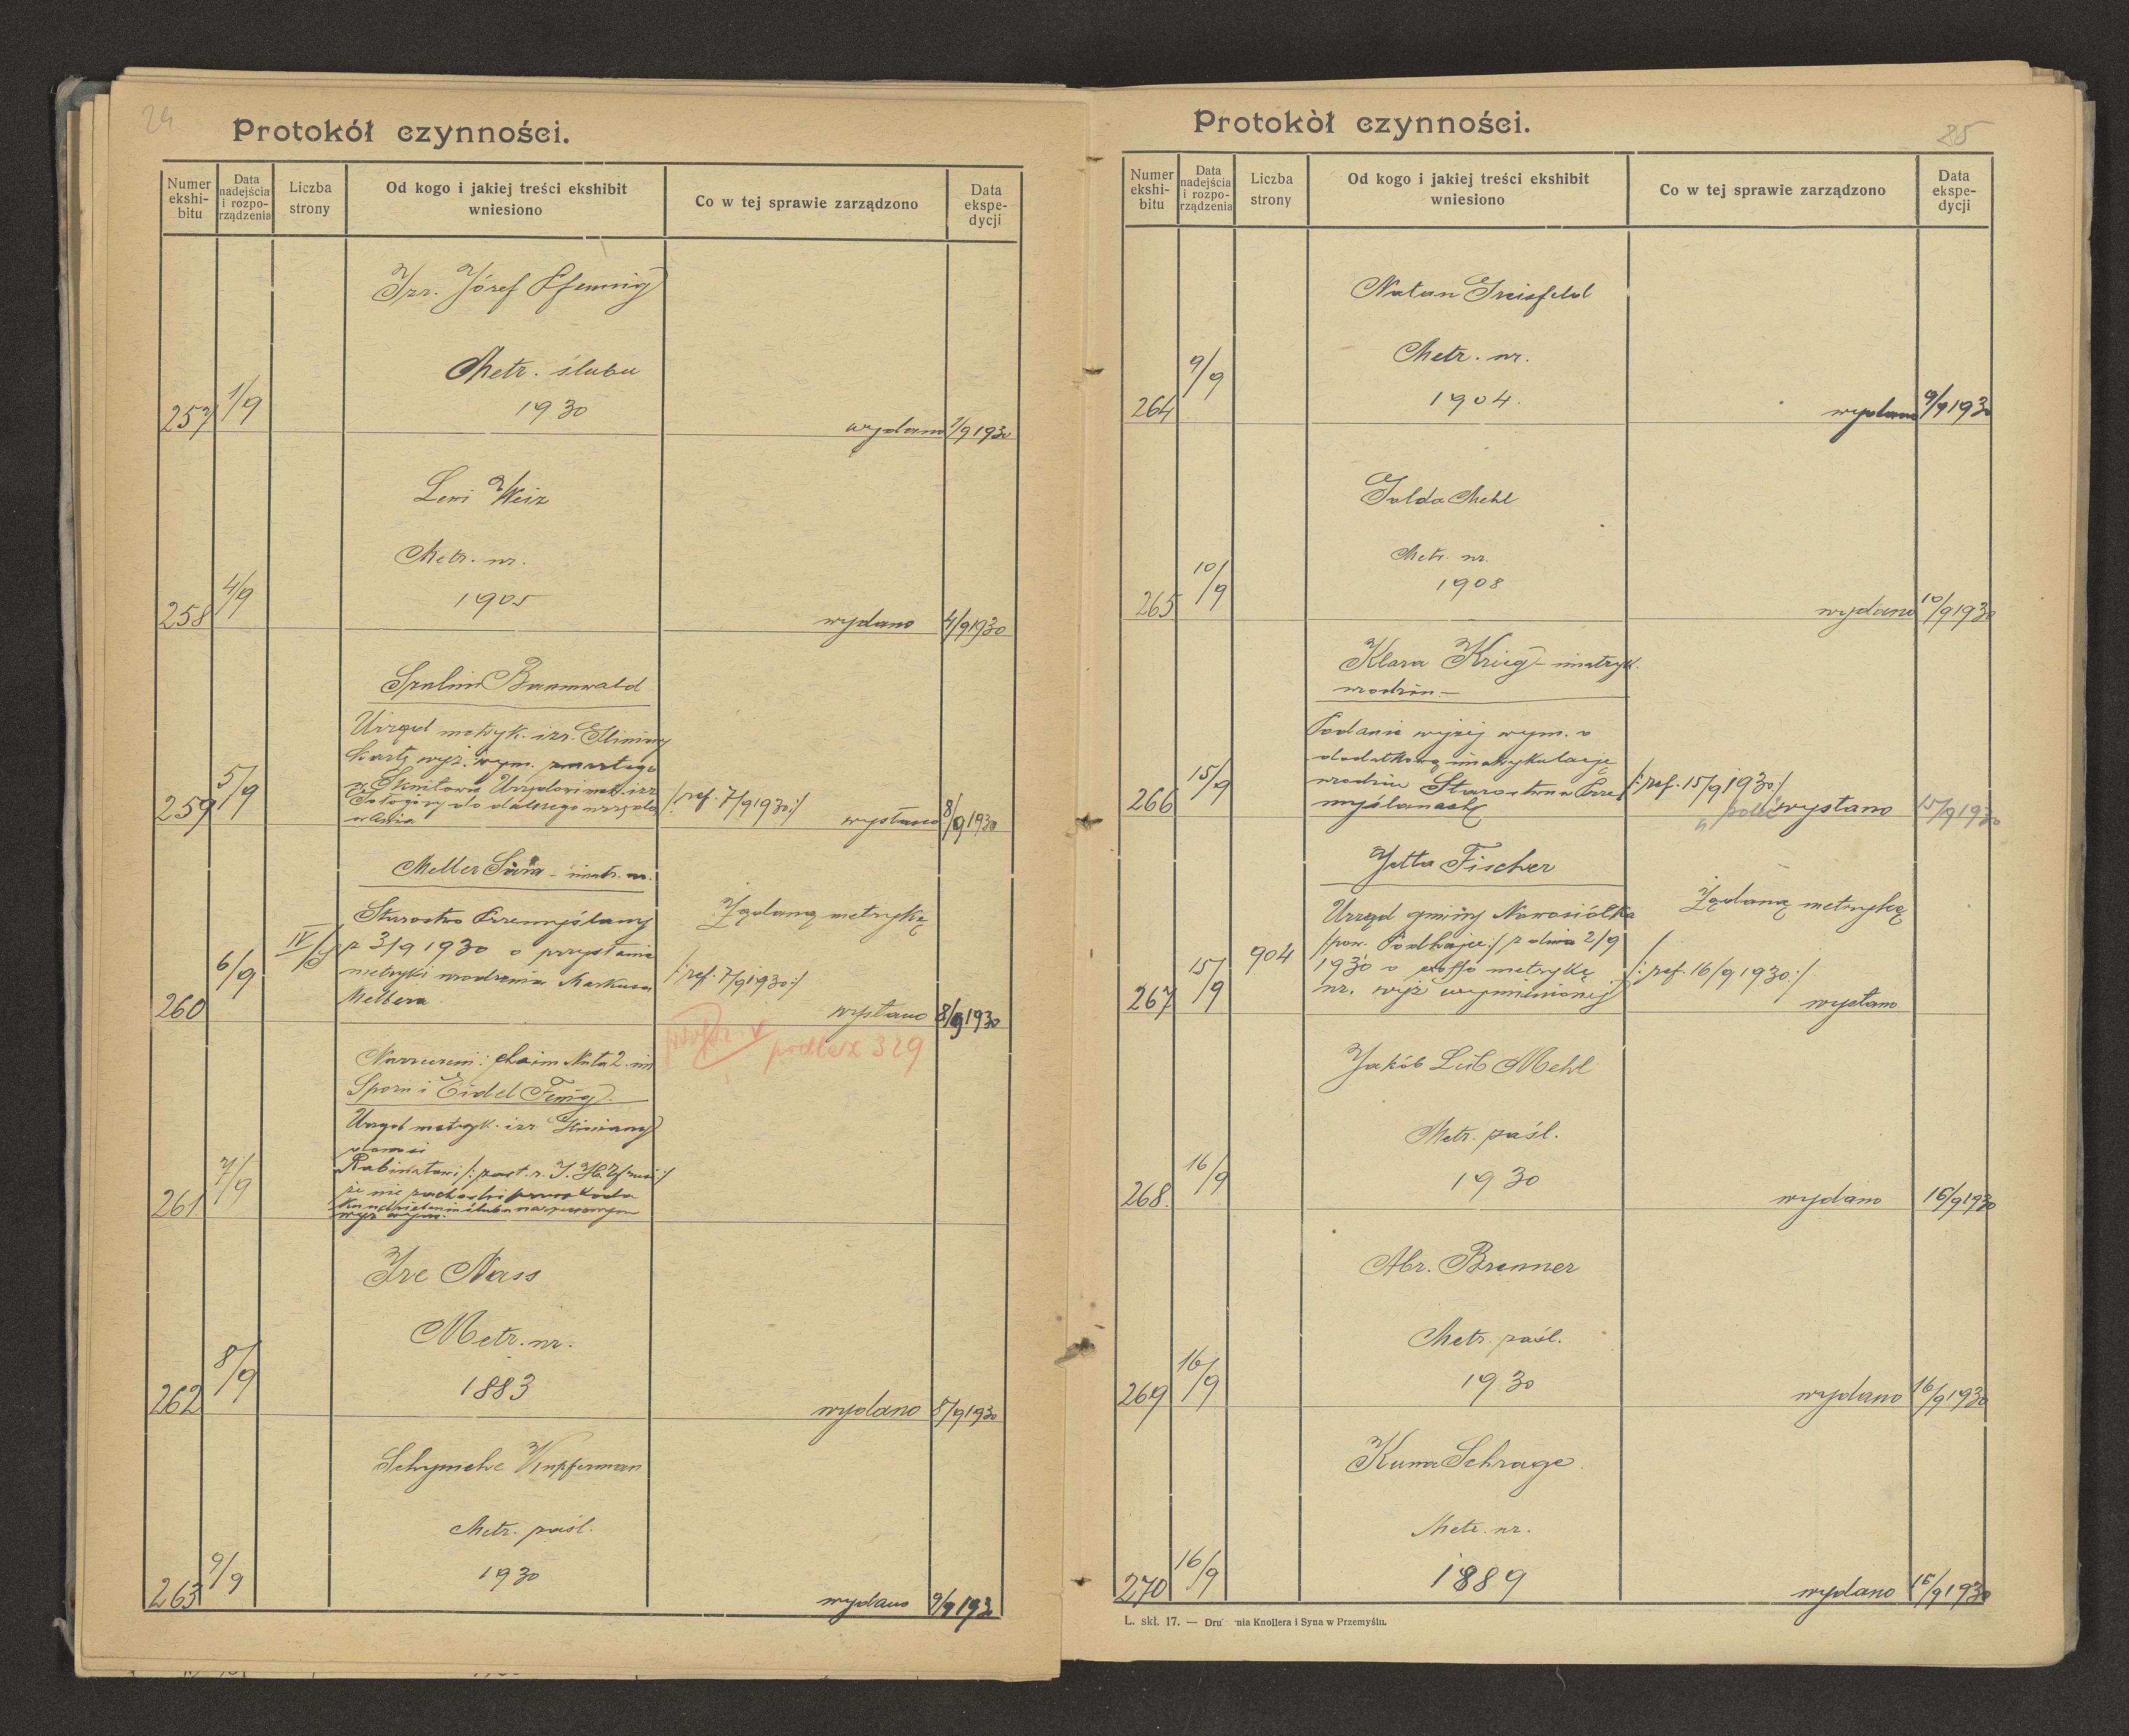 24
Protokół czynności.
Numer ekshi-bitu
Data nadejścia i rozpo-rządzenia
Liczba strony
Od kogo i jakiej treści ekshibit wniesiono
Co w tej sprawie zarządzono
Data ekspe-dycji
Izr. Józef Pfennig
Metr. ślubu
257 1/9 1930 wydano 1/9 1930
Lewi Weiz
Metr. nr.
258 4/9 1905 wydano 4/9 1930
Baumwald
Urząd metryk. izr. Gliniany
kartę wyż. wym.
259 5/9 /:ref. 7/9 1930:/ wysłano 8/9 1930
Melber Sara - imatr. nr.
Starostwo Przemyślany Żądaną metrykę
IV/
z 3/9 1930 o przysłanie
6/9 metryki urodzenia Markusa /:ref. 7/9 1930:/
260 Melbera wysłano 8/9 1930
pod lcz 329
Narzeczeni: Chaim Nuta 2. im
Sporn i Eidel Fenig
Urząd metryk. izr. Gliniany
donosi
Rabinatowi
261 7/9 że nie zachodzi przeszkoda
wyż wym.
Ire Nass
Metr. nr.
262 8/9 1883 wydano 8/9 1930
Kupferman
Metr. zaśl.
263 9/9 1930 wydano 9/9 193
Protokòł czynności.
85
Numer ekshi-bitu
Data nadejścia i rozpo-rządzenia
Liczba strony
Od kogo i jakiej treści ekshibit wniesiono
Co w tej sprawie zarządzono
Data ekspe-dycji
Natan Greisfeld
Metr. nr.
264 9/9 1904. wydano 9/9 1930
Golda Mehl
Metr. nr.
265 10/9 1908 wydano 10/9 1930
Klara Krieg - imatryk.
urodzin.-
Podanie wyżej wym. o
dodatkową imatrykulację
urodzin Starostwu Prze /:ref. 15/9 1930:/
266 15/9 myślanach wysłano 15/9 1930
Jetta Fischer
Urząd gminy Nowosiółka Żądaną metrykę
/:pow. Podhajce:/ z dnia 2/9
904 1930 o exoffo metrykę /:ref. 16/9 1930:/
267 15/9 nr. wyż wymienionej wysłano
Jakób Leib Mehl
Metr. zaśl.
268. 16/9 1930 wydano 16/9 1930
Abr. Brenner
Metr. zaśl.
269 16/9 1930 wydano 16/9 1930
Kuna Schrage.
Metr. nr.
270 16/9 1889 wydano 16/9 1930
L. skł. 17. — Dru nia Knollera i Syna w Przemyślu.